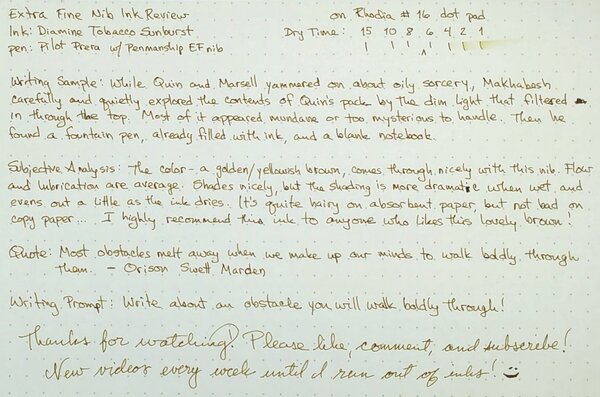 Extra Fine Nib Ink Review on Rhodia #16 dot pad
Ink: Diamine Tobacco Sunburst Dry Time: 15 10 8 6 4 2 1
pen: Pilot Prera w/ Penmanship EF nib
Writing Sample: While Quin and Marsell yammered on about oily sorcery, Makhabesh
carefully and quietly explored the contents of Quin's pack by the dim light that filtered
in through the top. Most of it appeared mundane or too mysterious to handle. Then he
found a fountain pen, already filled with ink, and a blank notebook.
Subjective Analysis: The color - a golden/yellowish brown, comes through nicely with this nib. Flow
and lubrication are average. Shades nicely, but the shading is more dramatic when wet, and
evens out a little as the ink dries. It's quite hairy on absorbent paper, but not bad on
copy paper... I highly recommend this ink to anyone who likes this lovely brown!
Quote: Most obstacles melt away when we make up our minds to walk boldly through
them. - Orison Swett Marden
Writing Prompt: Write about an obstacle you will walk boldly through!
Thanks for watching! Please like, comment, and subscribe!
New videos every week until I run out of inks!